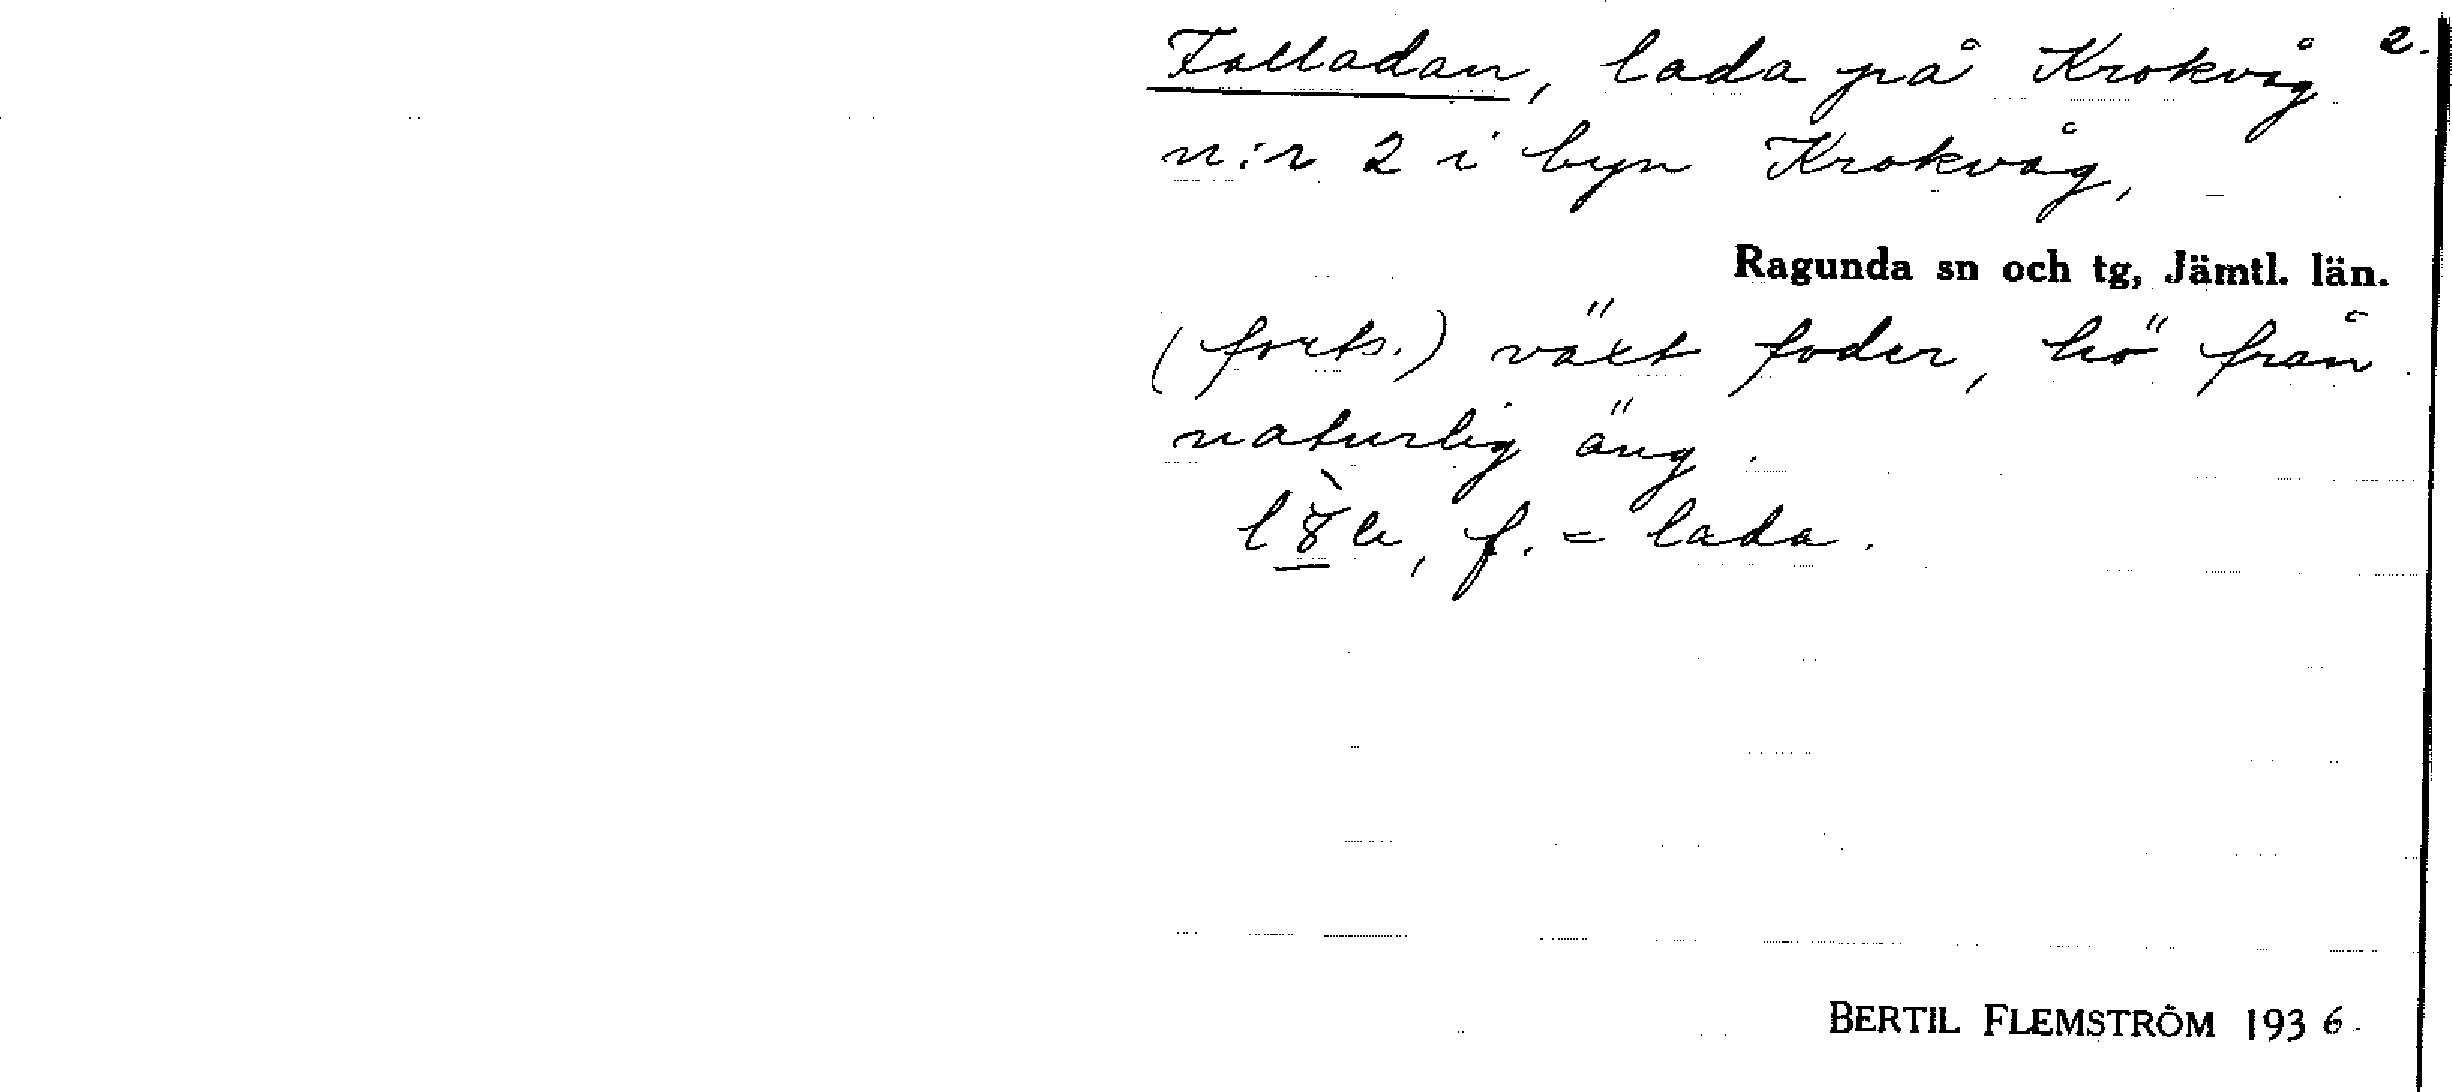 Falladan, lada på Krokvåg 2.
n:r 2 i byn Krokvåg,
Ragunda sn och tg, Jämtl. län.
(forts.) växt foder, hö från
naturlig äng.
f. = lada.
BERTIL FLEMSTRÖM 1936